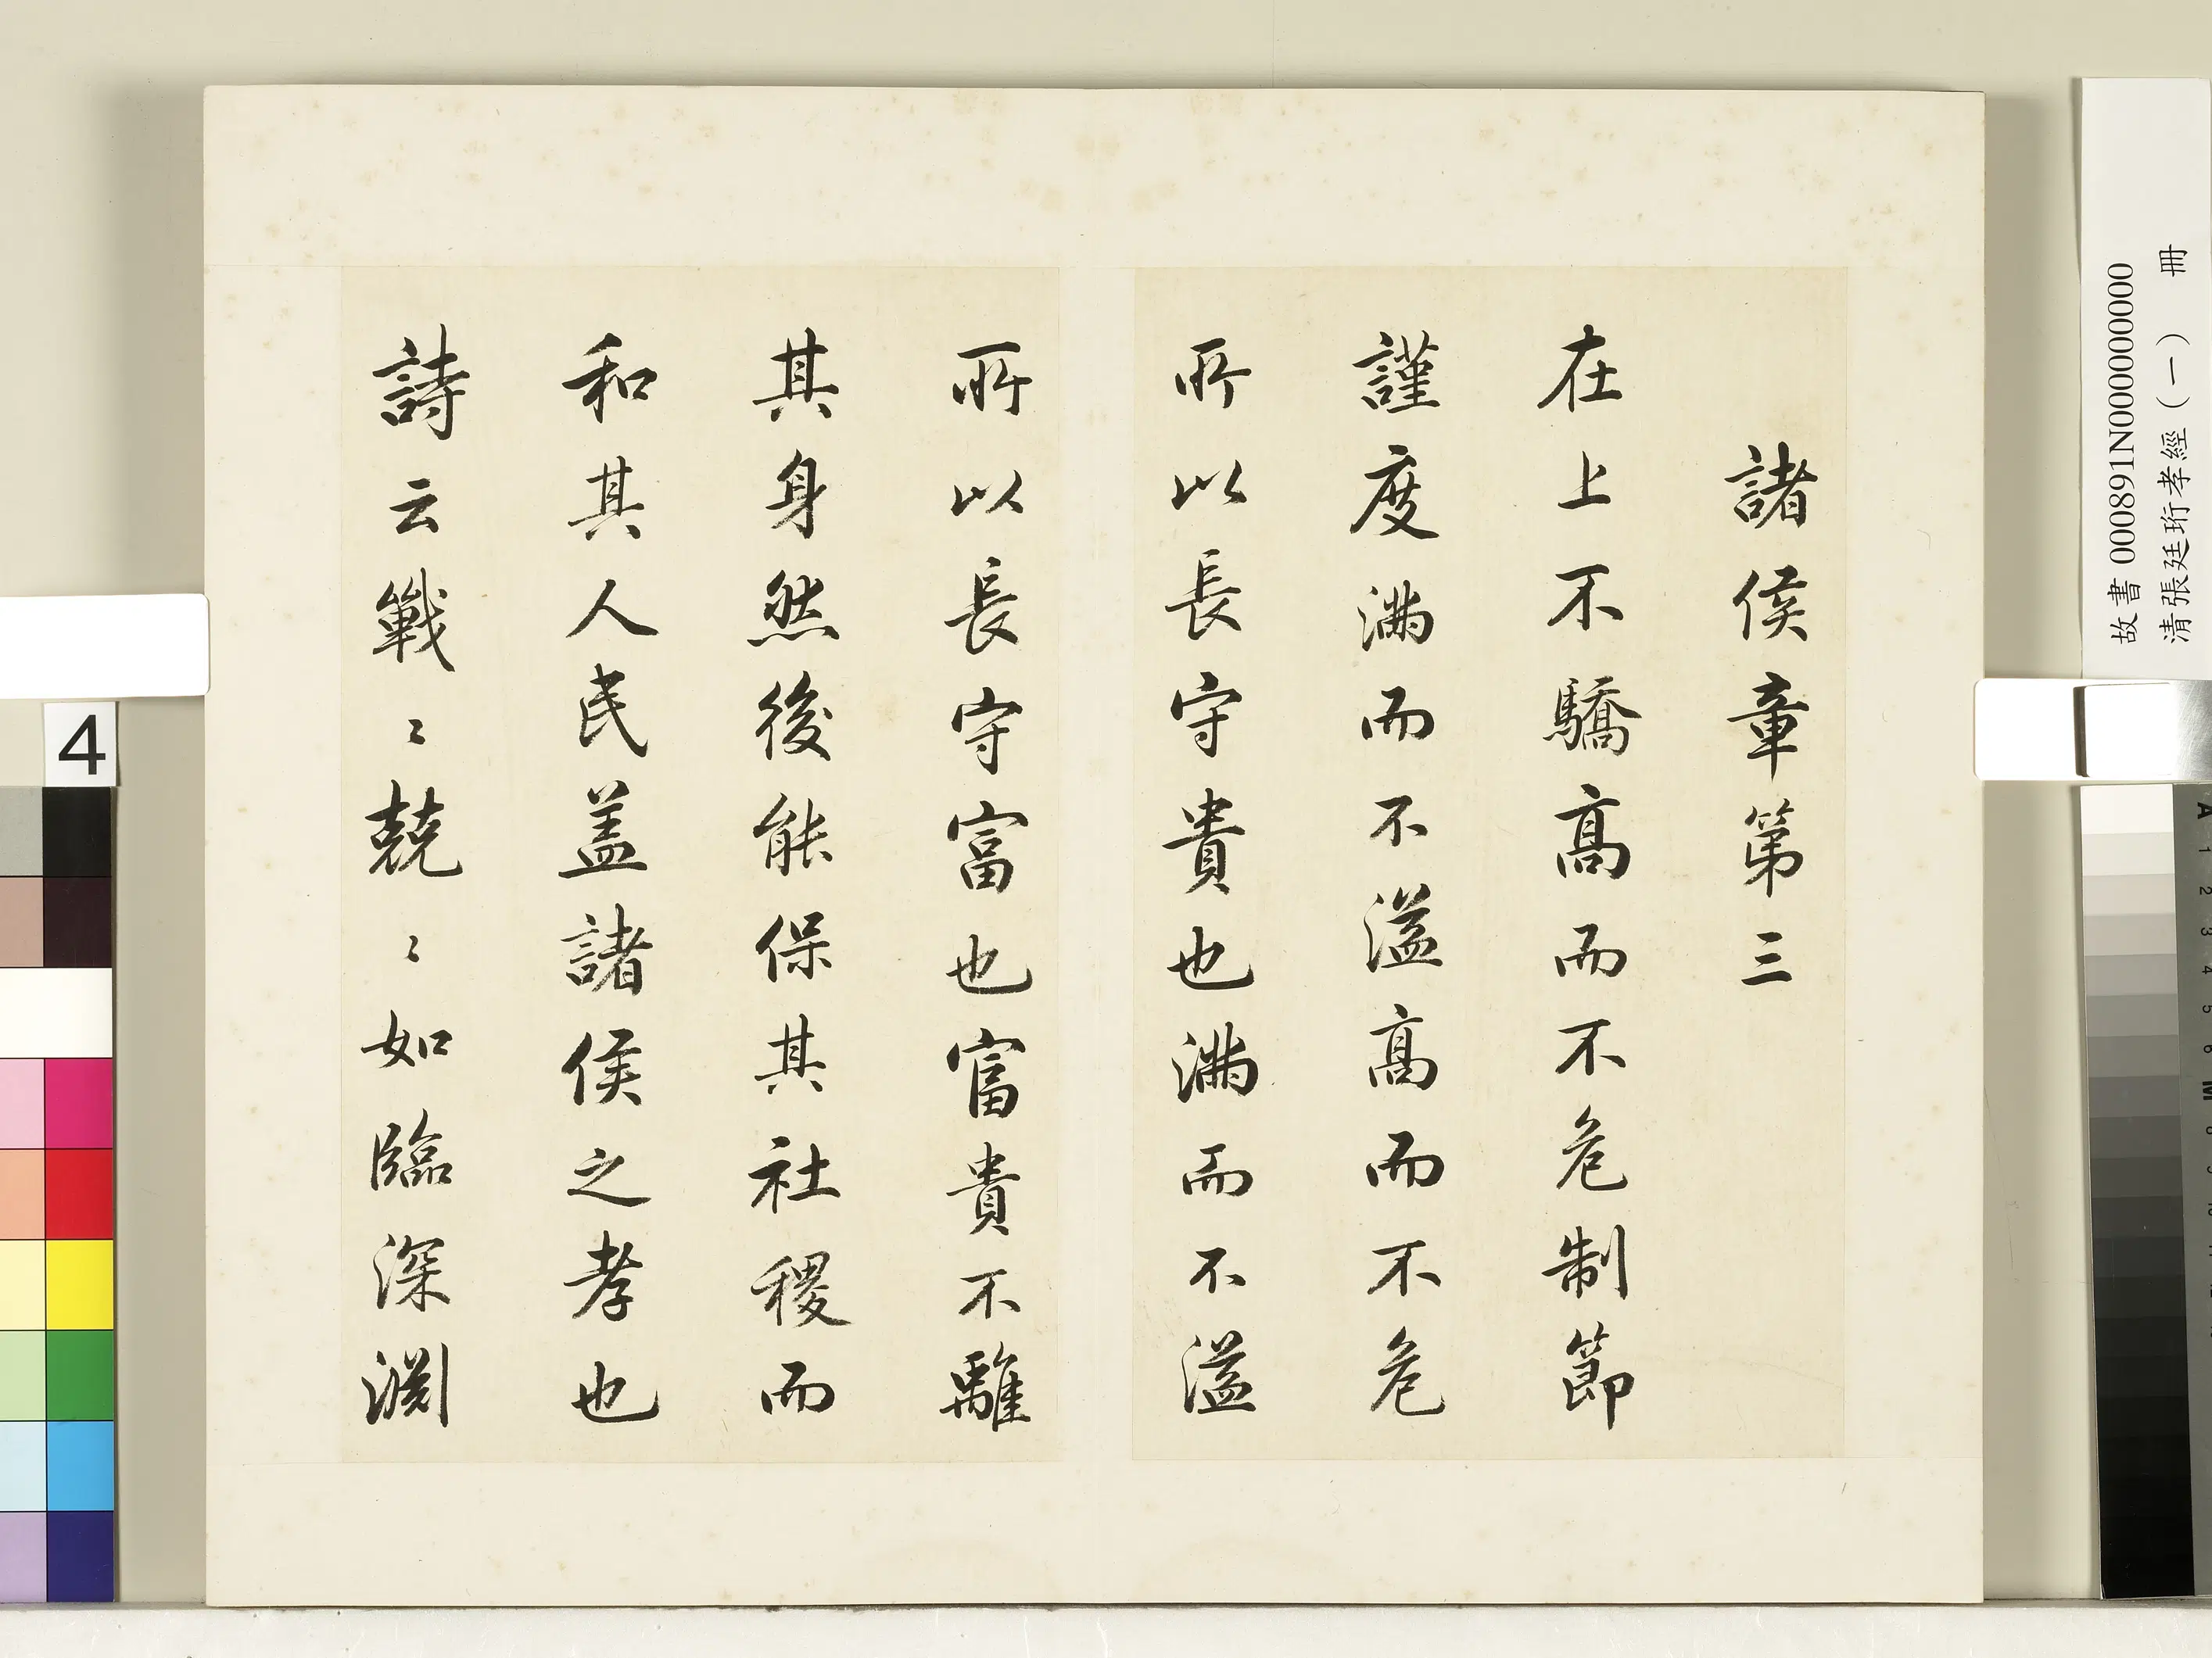 諸侯章第三
在上不驕高而不危制節
謹度滿而不溢高而不危
所以長守貴也滿而不溢
所以長守富也富貴不離
其身然後能保其社稷而
和其人民盖諸侯之孝也
詩云戰〻兢〻如臨深淵
故書 000891N000000000
清張廷珩孝經（一） 冊
4
A 1 2 3 4 5 6 M 8 9